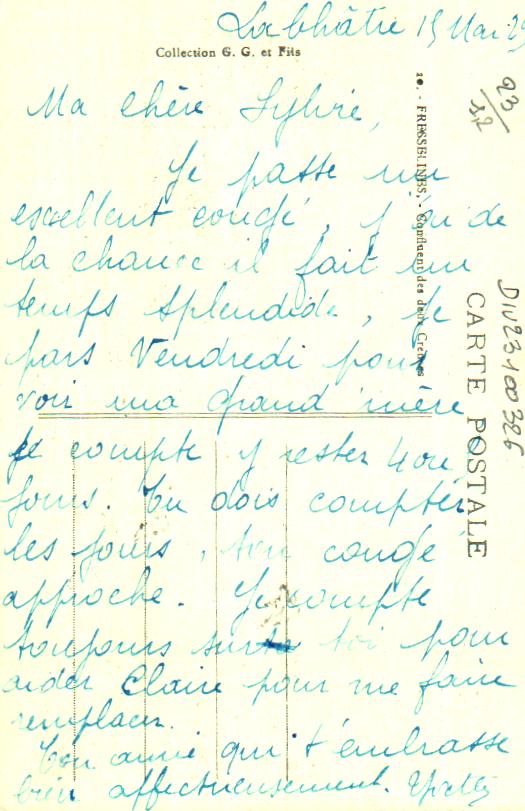 La Châtre 15 Mai
Collection G. G. et Fils
Ma chère Sylvie,
Je passe un
excellent congé, j'ai de
la chance il fait un
temps splendide, Je
pars Vendredi pour
voir ma grand'mère
Je compte y rester 4 ou
jours. Tu dois compter
les jours, ton congé
approche. Je compte
toujours sur toi pour
aider Claire pour me faire
remplacer.
Ton amie qui t'embrasse
bien affectueusement.
10. - FRESSELINES. - Confluent des deux Creuses
CARTE POSTALE
DIV23100326